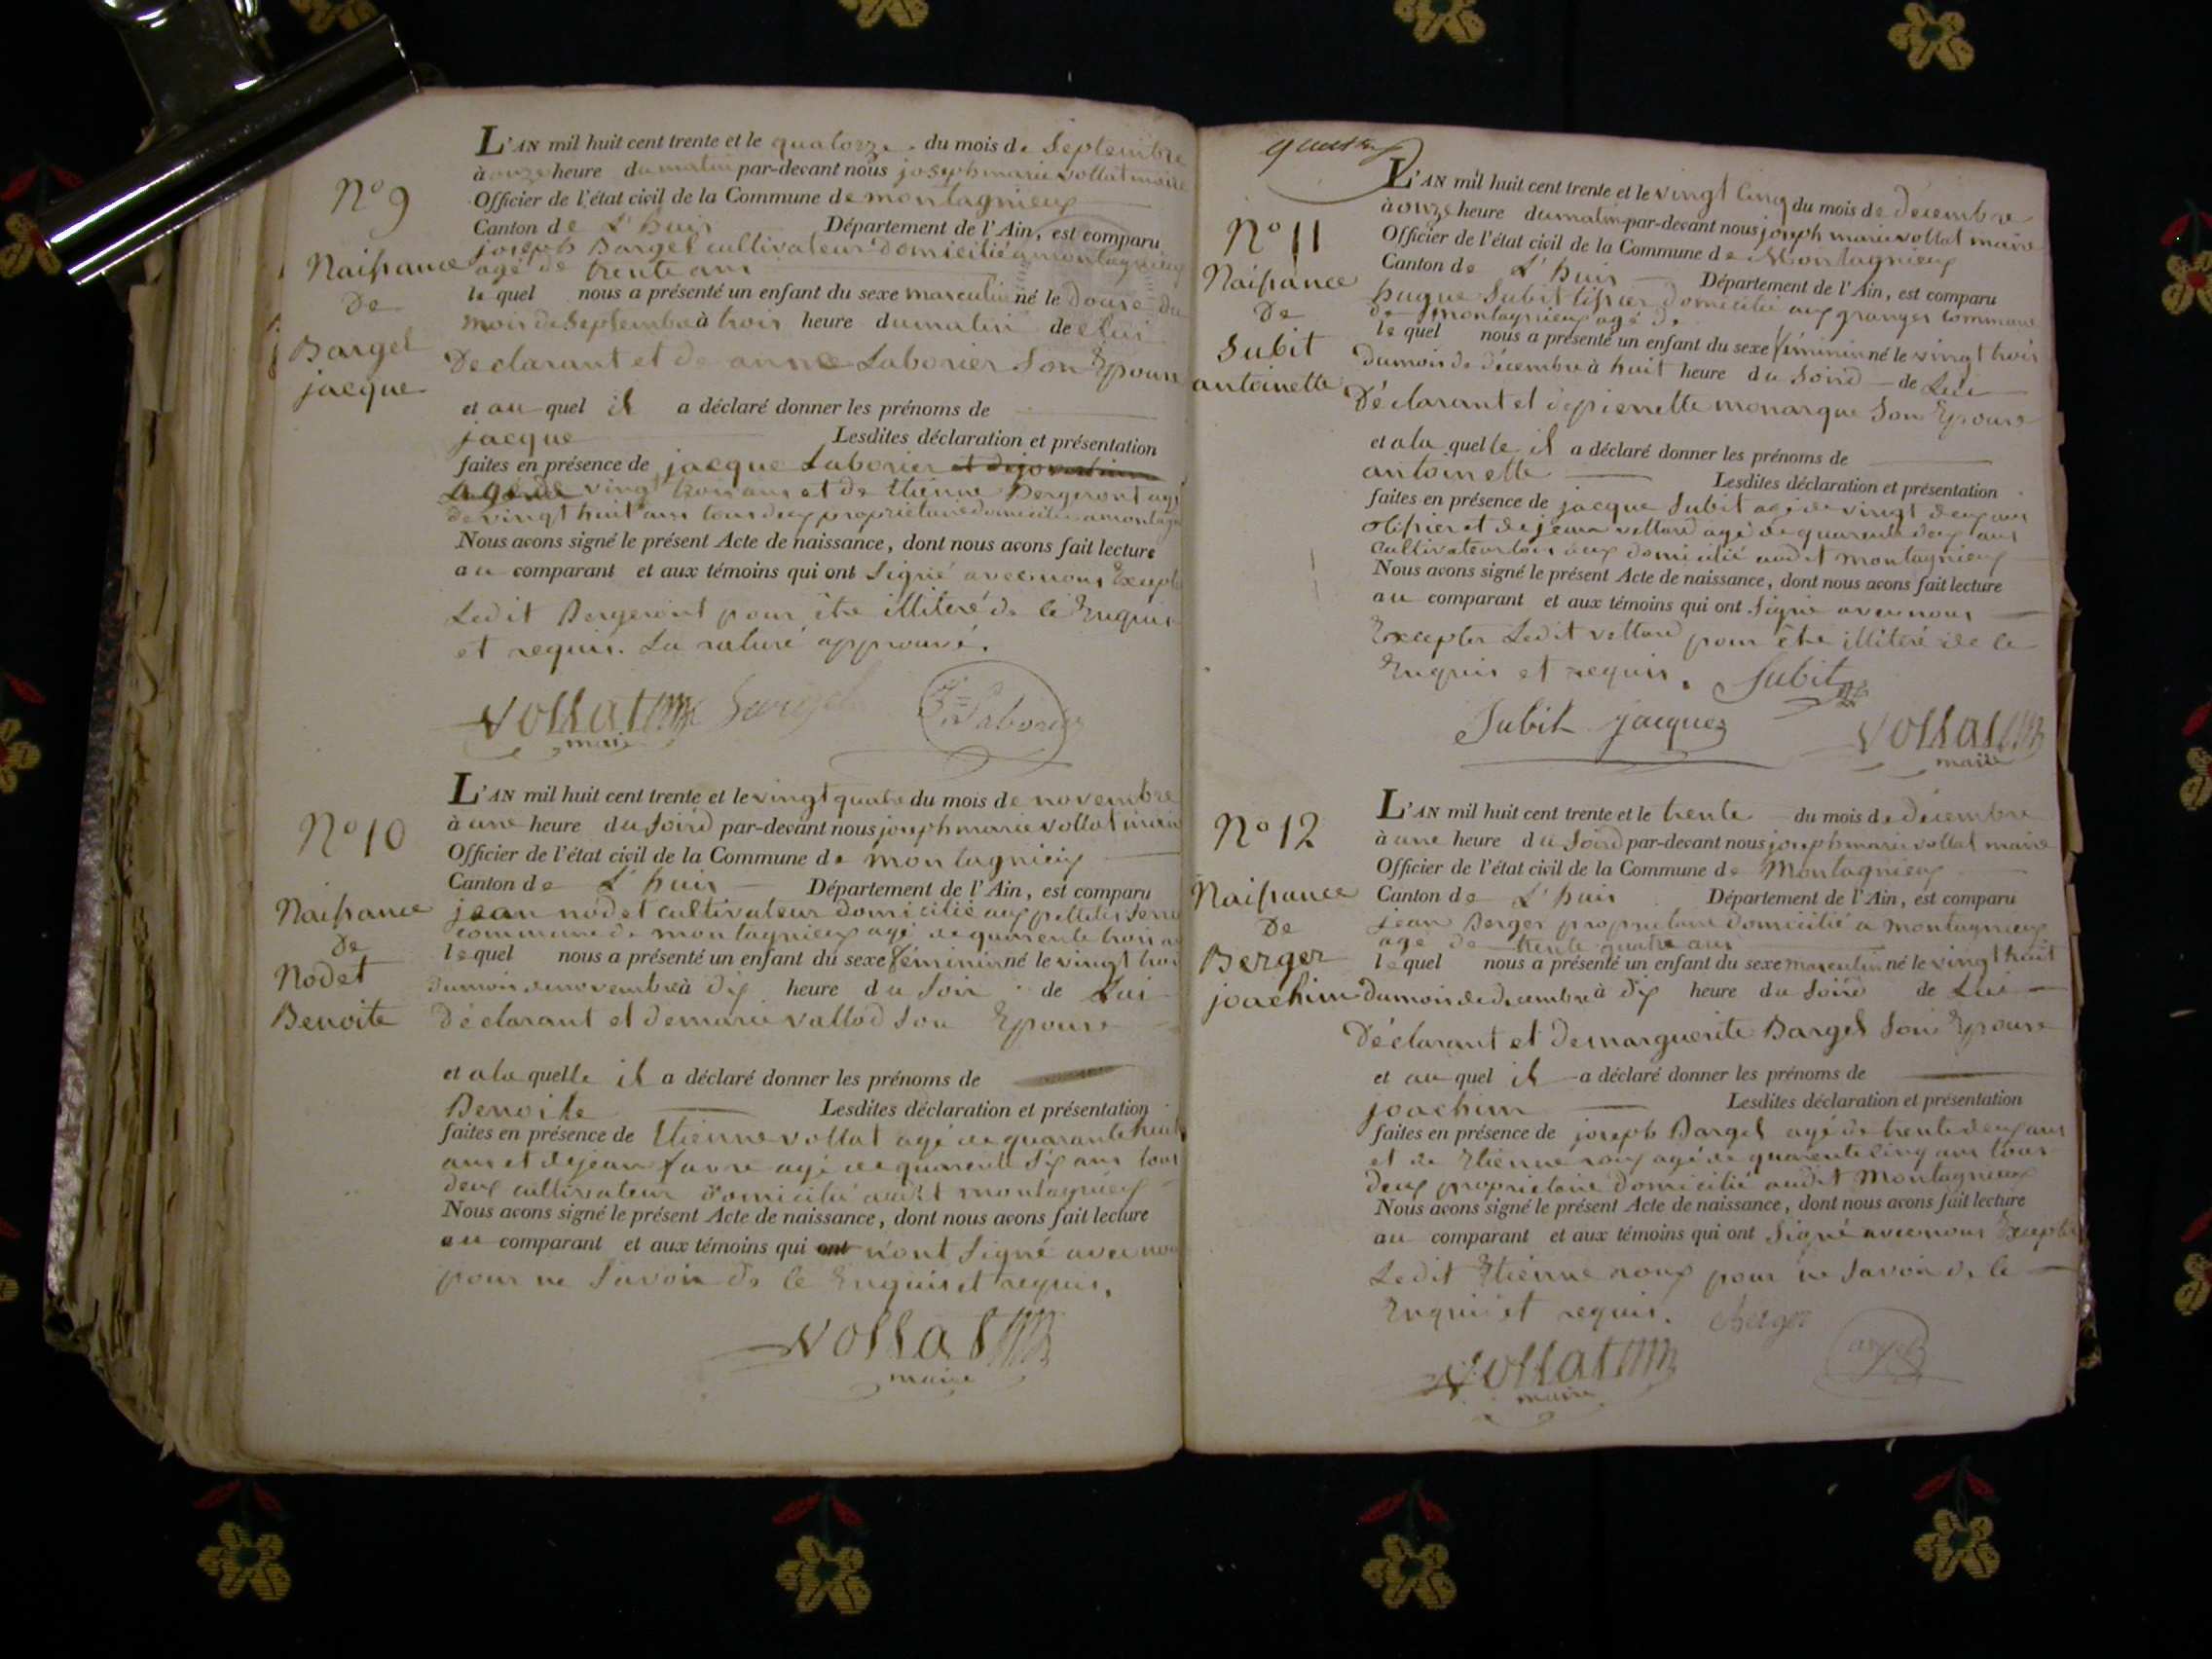 N° 9
Naissance
De
Bargel
jacque
L'AN mil huit cent trente et le quatorze du mois de Septembre
à onze heure du matin par-devant nous joseph marie vollat maire
Officier de l'état civil de la Commune de montagnieux
Canton de L'huis Département de l'Ain, est comparu
joseph Bargel cultivateur domicilié a montagnieux
agé de trente ans
le quel nous a présenté un enfant du sexe masculin né le douse du
mois de Septembre à trois heure du matin de lui
Declarant et de anne Laborier Son Epouse
et au quel il a déclaré donner les prénoms de
jacque Lesdites déclaration et présentation
faites en présence de jacque Laborier
agé de vingt trois ans et de Etienne Bergeront agé
de vingt huit ans tous deux proprietaire domicilié a montag
Nous avons signé le présent Acte de naissance, dont nous avons fait lecture
au comparant et aux témoins qui ont Signé avec nous Excepté
Ledit Bergeront pour être illiteré de ce Enquis
et requis. La raturé approuvé.
vollat Bargel Laborier
maire
N° 10
Naissance
De
Nodet
Benoite
L'AN mil huit cent trente et le vingt quatre du mois de novembre
à une heure du Soird par-devant nous joseph marie vollat maire
Officier de l'état civil de la Commune de montagnieux
Canton de L'huis Département de l'Ain, est comparu
jean nodet cultivateur domicilié aux pettites Serra
commune de montagnieux agé de quarente trois an
le quel nous a présenté un enfant du sexe féminin né le vingt trois
du mois de novembre à dix heure du Soir de Lui
Déclarant et de marie vallod Son Epouse
et a la quelle il a déclaré donner les prénoms de
Benoite Lesdites déclaration et présentation
faites en présence de Etienne vollat agé de quarante huit
ans et de jean favre agé de quarente Six ans tous
deux cultivateur domicilié audit montagnieux
Nous avons signé le présent Acte de naissance, dont nous avons fait lecture
au comparant et aux témoins qui ont n'ont Signé avec nou
pour ne Savoir de ce Enquis et requis.
vollat
maire
N° 11
Naissance
De
Subit
antoinette
L'AN mil huit cent trente et le vingt cinq du mois de décembre
à onze heure du matin par-devant nous joseph marie vollat maire
Officier de l'état civil de la Commune de Montagnieux
Canton de L'huis Département de l'Ain, est comparu
hugue Subit tissier domicilié aux granges commune
de montagnieux agé de
le quel nous a présenté un enfant du sexe féminin né le vingt trois
du mois de décembre à huit heure du Soird de Lui
Déclarant et de pierrette monarque Son Epouse
et a la quelle il a déclaré donner les prénoms de
antoinette Lesdites déclaration et présentation
faites en présence de jacque Subit agé de vingt deux ans
et de jean vettard agé de quarente deux ans
cultivateur tous deux domicilié audit montagnieux
Nous avons signé le présent Acte de naissance, dont nous avons fait lecture
au comparant et aux témoins qui ont Signé avec nous
Excepter Ledit vettard pour être illiteré de ce
Enquis et requis. Subit
Subit jacques vollat
maire
N° 12
Naissance
De
Berger
joachim
L'AN mil huit cent trente et le trente du mois de décembre
à une heure du Soird par-devant nous joseph marie vollat maire
Officier de l'état civil de la Commune de Montagnieux
Canton de L'huis Département de l'Ain, est comparu
jean Berger proprietaire domicilié a montagnieux
agé de trente quatre ans
le quel nous a présenté un enfant du sexe masculin né le vingt huit
du mois de décembre à dix heure du Soird de Lui
Déclarant et de marguerite Bargel Son Epouse
et au quel il a déclaré donner les prénoms de
joachim Lesdites déclaration et présentation
faites en présence de joseph Bargel agé de trente deux ans
et de Etienne roux agé de quarente cinq ans tous
deux proprietaire domicilié audit Montagnieux
Nous avons signé le présent Acte de naissance, dont nous avons fait lecture
au comparant et aux témoins qui ont Signé avec nous Excepté
Ledit Etienne roux pour ne Savoir de ce
Enquis et requis. Berger
vollat Bargel
maire